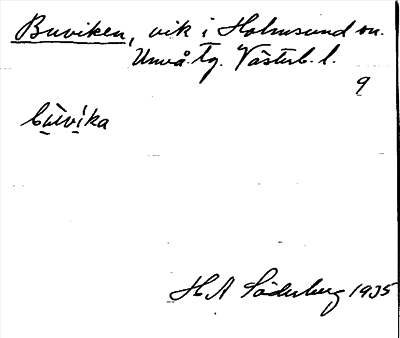 Buviken, vik i Holmsund sn.
Umeå tg. Västerb. l.
9
bùvíka
H A Söderberg 1935